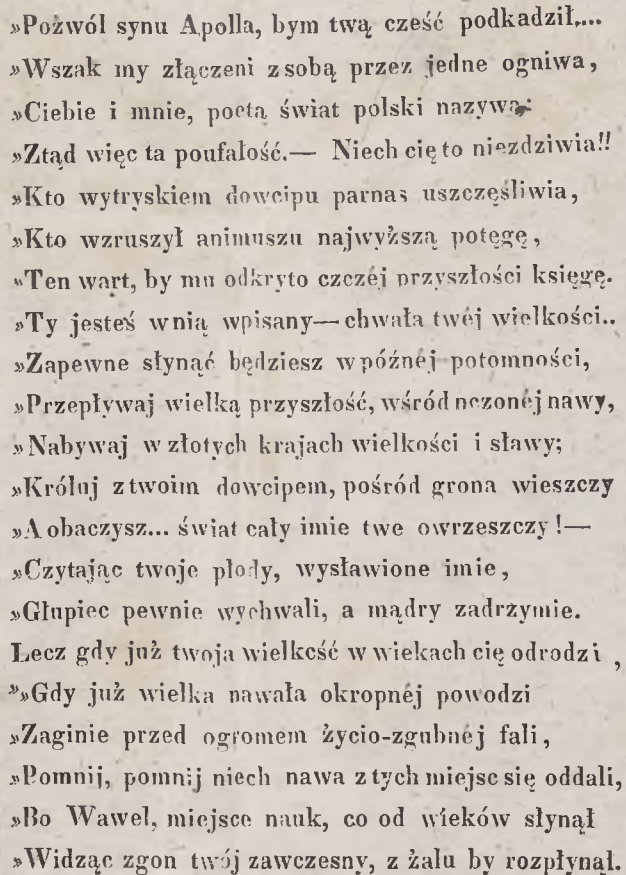 »Pozwól synu Apolla, bym twą cześć podkadził,...
»Wszak my złączeni z sobą przez jedne ogniwa,
»Ciebie i mnie, poetą świat polski nazywa:
»Ztąd więc ta poufałość.— Niech cię to niezdziwia!!
»Kto wytryskiem dowcipu parnas uszczęśliwia,
»Kto wzruszył animuszu najwyższą potęgę,
»Ten wart, by mu odkryto czczéj przyszłości księgę.
»Ty jesteś w nią wpisany—chwała twéj wielkości..
»Zapewne słynąć będziesz w późnéj potomności,
»Przepływaj wielką przyszłość, wśród uczonéj nawy,
»Nabywaj w złotych krajach wielkości i sławy;
»Króluj z twoim dowcipem, pośród grona wieszczy
»A obaczysz... świat cały imie twe owrzeszczy!—
»Czytając twoje płody, wysławione imie,
»Głupiec pewnie wychwali, a mądry zadrzymie.
Lecz gdy już twoja wielkość w wiekach cię odrodzi,
»»Gdy już wielka nawała okropnéj powodzi
»Zaginie przed ogromem życio-zgubnéj fali,
»Pomnij, pomnij niech nawa z tych miejsc się oddali,
»Bo Wawel, miejsce nauk, co od wieków słynął
»Widząc zgon twój zawczesny, z żalu by rozpłynął.